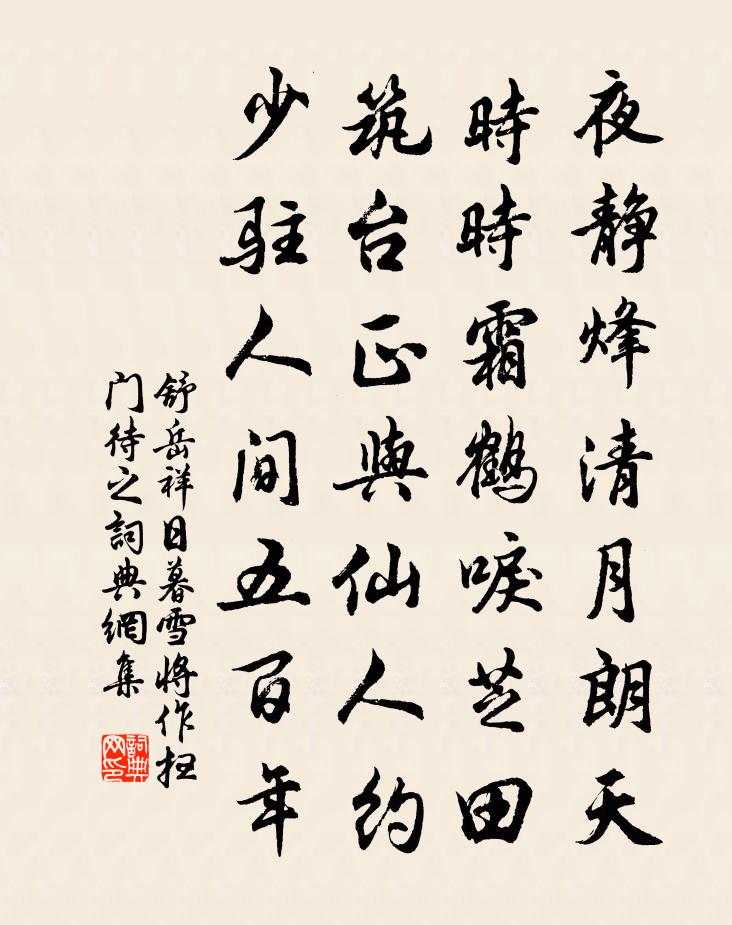 夜静烽清月朗天
時時霜鶴唳芝田
筑台正與仙人约
少驻人间五百年
舒岳祥日暮雪将作扫
门待之詞典網集
詞典网印